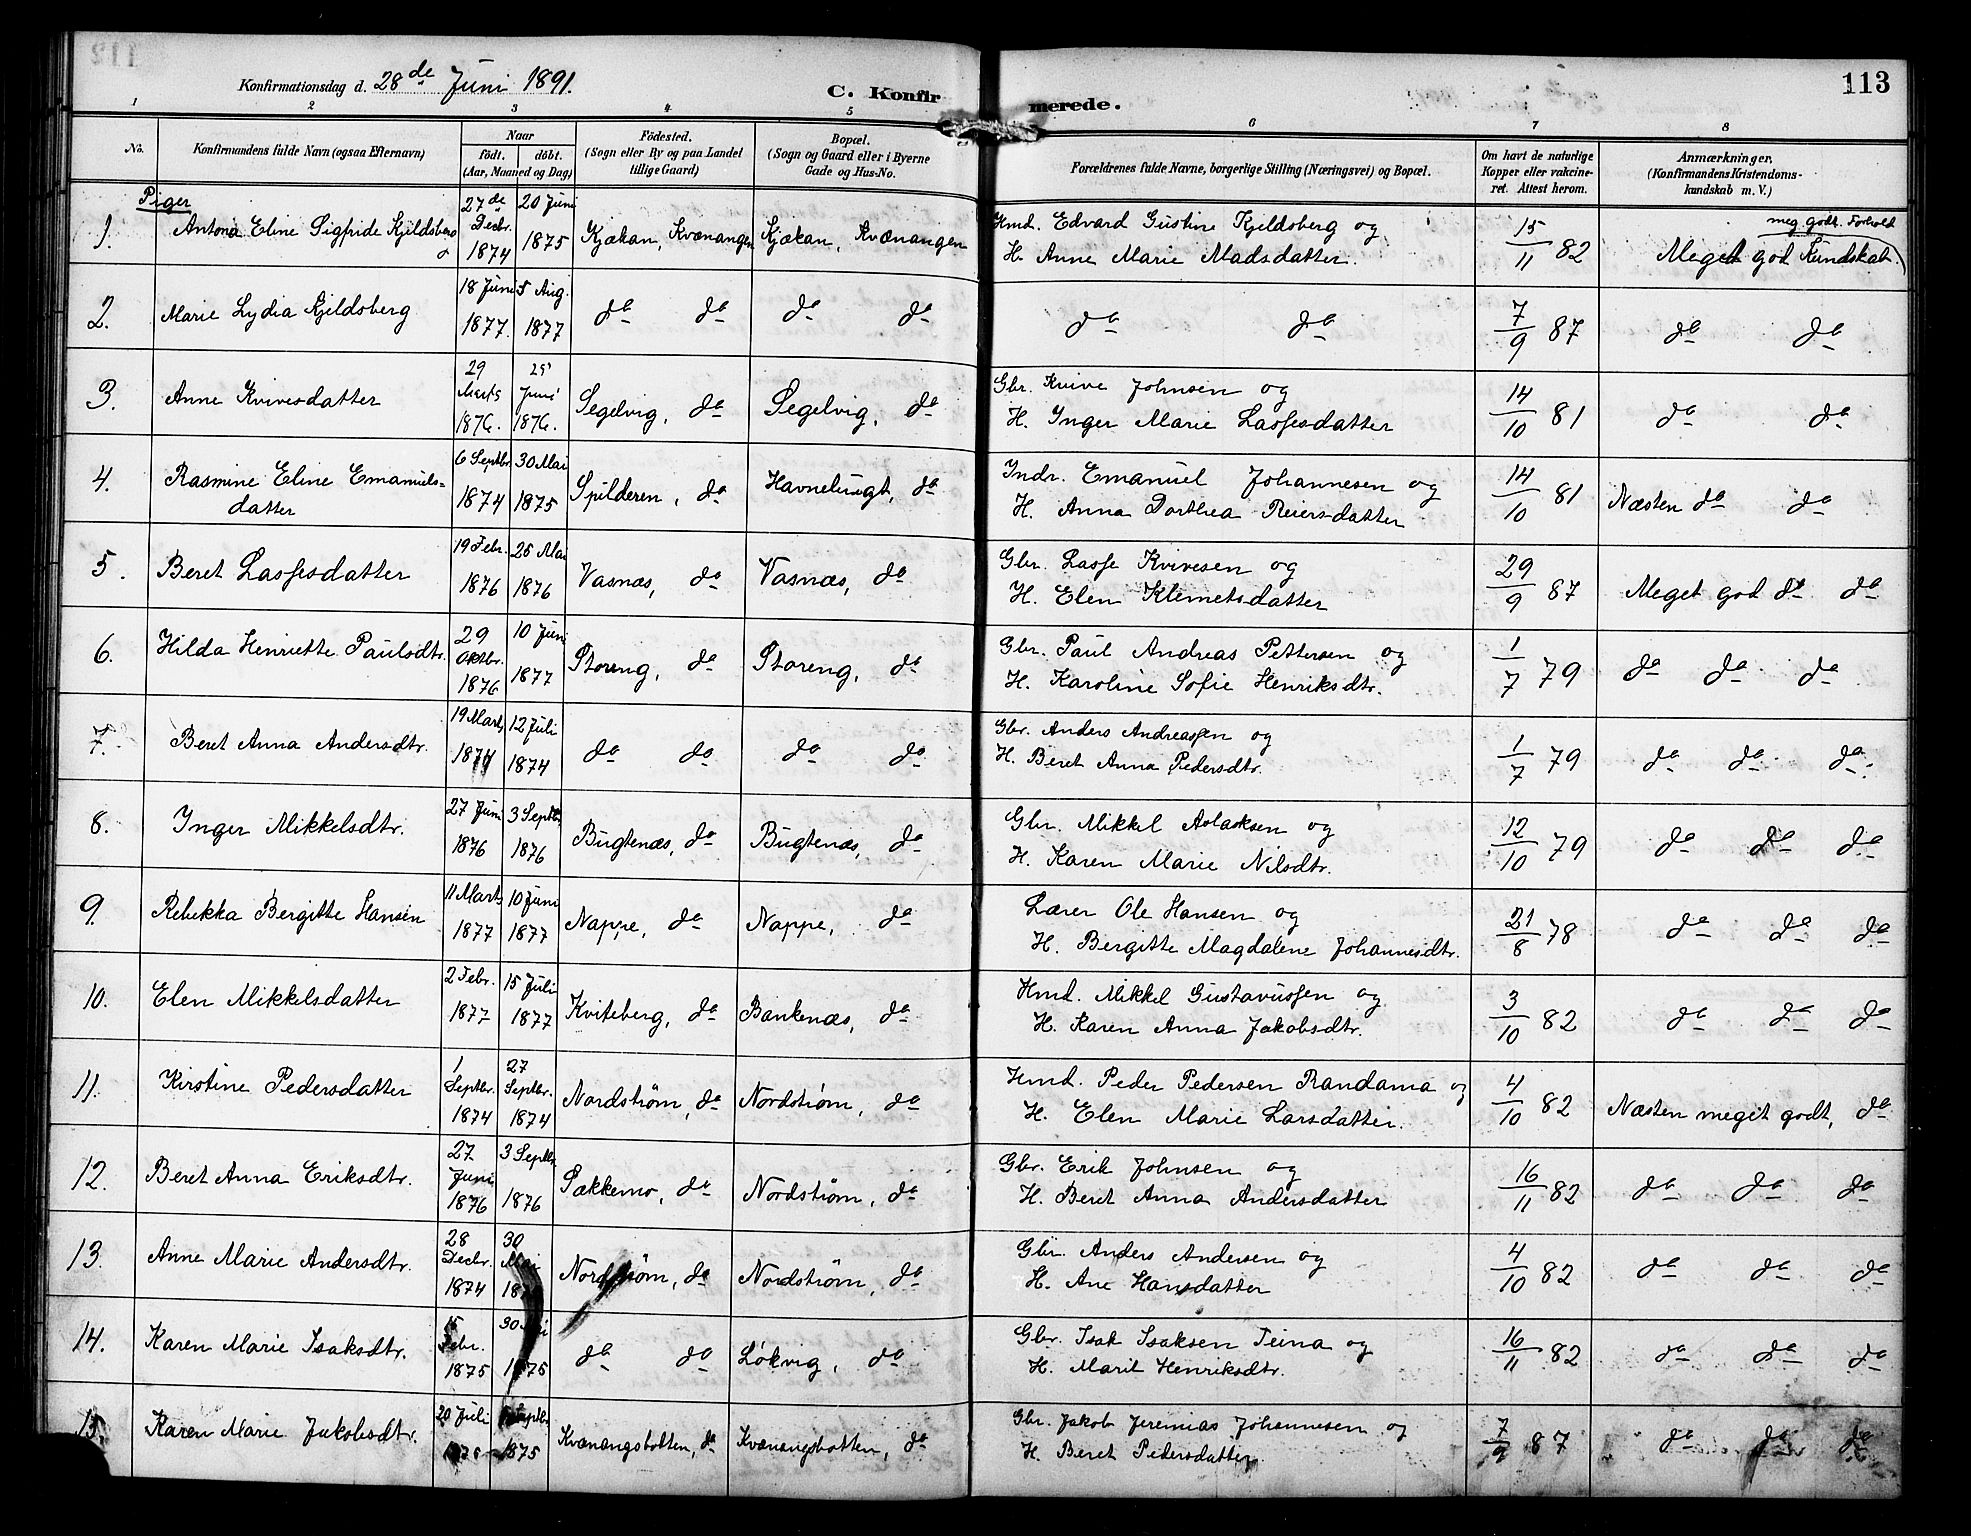 113
Konfirmationsdag d. 28de Juni 1891.
C. Konfirmerede.
1 2 3 4 5 6 7 8
No. Konfirmandens fulde Navn (ogsaa Efternavn) Naar födt. döbt. (Aar, Maaned og Dag) Födested. (Sogn eller By og paa Landet tillige Gaard) Bopæl. (Sogn og Gaard eller i Byerne Gade og Hus-No. Forældrenes fulde Navne, borgerlige Stilling (Næringsvei) og Bopæl. Om havt de naturlige Kopper eller vakcineret. Attest herom. Anmærkninger, (Konfirmandens Kristendomskundskab m. V.)
Piger
1. Antona Eline Sigfride Kjeldsberg 27de Decbr. 1874 20 Juni 1875 Kjækan, Kvænangen Kjækan, Kvænangen Hmd. Edvard Gustine Kjeldsberg og
H. Anne Marie Madsdatter. 15/11 82 Meget god Kundskab. meg. godt Forhold
2. Marie Lydia Kjeldsberg 18 Juni 1877. 5 Aug. 1877 do do do do do do 7/9 87 do do
3. Anne Kvivesdatter 29 Marts 1876. 25 Juni 1876. Segelvig, do Segelvig, do Gbr. Kvive Johnsen og
H. Inger Marie Lassesdatter 14/10 81 do do
4. Rasmine Eline Emanuels=
datter 6 Septbr. 1874 30 Mai 1875 Spilderen, do Havnebugt, do Indr. Emanuel Johannesen og
H. Anna Dorthea Reiersdatter 14/10 81 Næsten do do
5. Beret Lassesdatter 19 Febr. 1876 25 Mai 1876 Vasnæs, do Vasnæs, do Gbr. Lasse Kvivesen og
H. Elen Klemetsdatter 29/9 87 Meget god do do
6. Hilda Henriette Paulsdtr. 29 Oktbr. 1876 10 Juni 1877 Storeng, do Storeng, do Gbr. Paul Andreas Pettersen og
H. Karoline Sofie Henriksdtr. 1/7 79 do do do
7. Beret Anna Andersdtr. 19 Marts 1874 12 Juli 1874 do do do do Gbr. Anders Andreassen og
H. Beret Anna Pedersdtr. 1/7 79 do do do
8. Inger Mikkelsdtr. 27 Juni 1876 3 Septbr. 1876 Bugtenæs, do Bugtenæs, do Gbr. Mikkel Aslaksen og
H. Karen Marie Nilsdtr. 12/10 79 do do do
9. Rebekka Bergitte Hansen 11 Marts 1877 10 Juni 1877 Nappe, do Nappe, do Lærer Ole Hansen og
H. Bergitte Magdalene Johannesdtr. 21/8 78 do do do
10. Elen Mikkelsdatter 2 Febr. 1877 15 Juli 1877 Kviteberg, do Bankenæs, do Hmd. Mikkel Gustavussen og
H. Karen Anna Jakobsdtr. 3/10 82 do do do
11. Kirstine Pedersdatter 1 Septbr. 1874 27 Septbr. 1874 Nordstrøm, do Nordstrøm, do Hmd. Peder Pedersen Randama og
H. Elen Marie Larsdatter. 4/10 82 Næsten meget godt, do
12. Beret Anna Eriksdtr. 27 Juni 1876 3 Septbr. 1876 Sækkemo, do Nordstrøm, do Gbr. Erik Johnsen og
H. Beret Anna Andersdatter 16/11 82 do do do
13. Anne Marie Andersdtr. 28 Decbr. 1874 30 Mai Nordstrøm, do Nordstrøm, do Gbr. Anders Andersen og
H. Ane Hansdatter 4/10 82 do do do
14. Karen Marie Isaksdtr. 15 Febr. 1875 30 1875 do do Løkvig, do Gbr. Isak Isaksen Teina og
H. Marit Henriksdtr. 16/11 82 do do do
15. Karen Marie Jakobsdtr. 20 Juli 1875 Septbr. 1875 Kvænangsbotten, do Kvænangsbotten, do Gbr. Jakob Jeremias Johannesen og
H. Beret Pedersdatter 7/9 87 do do do